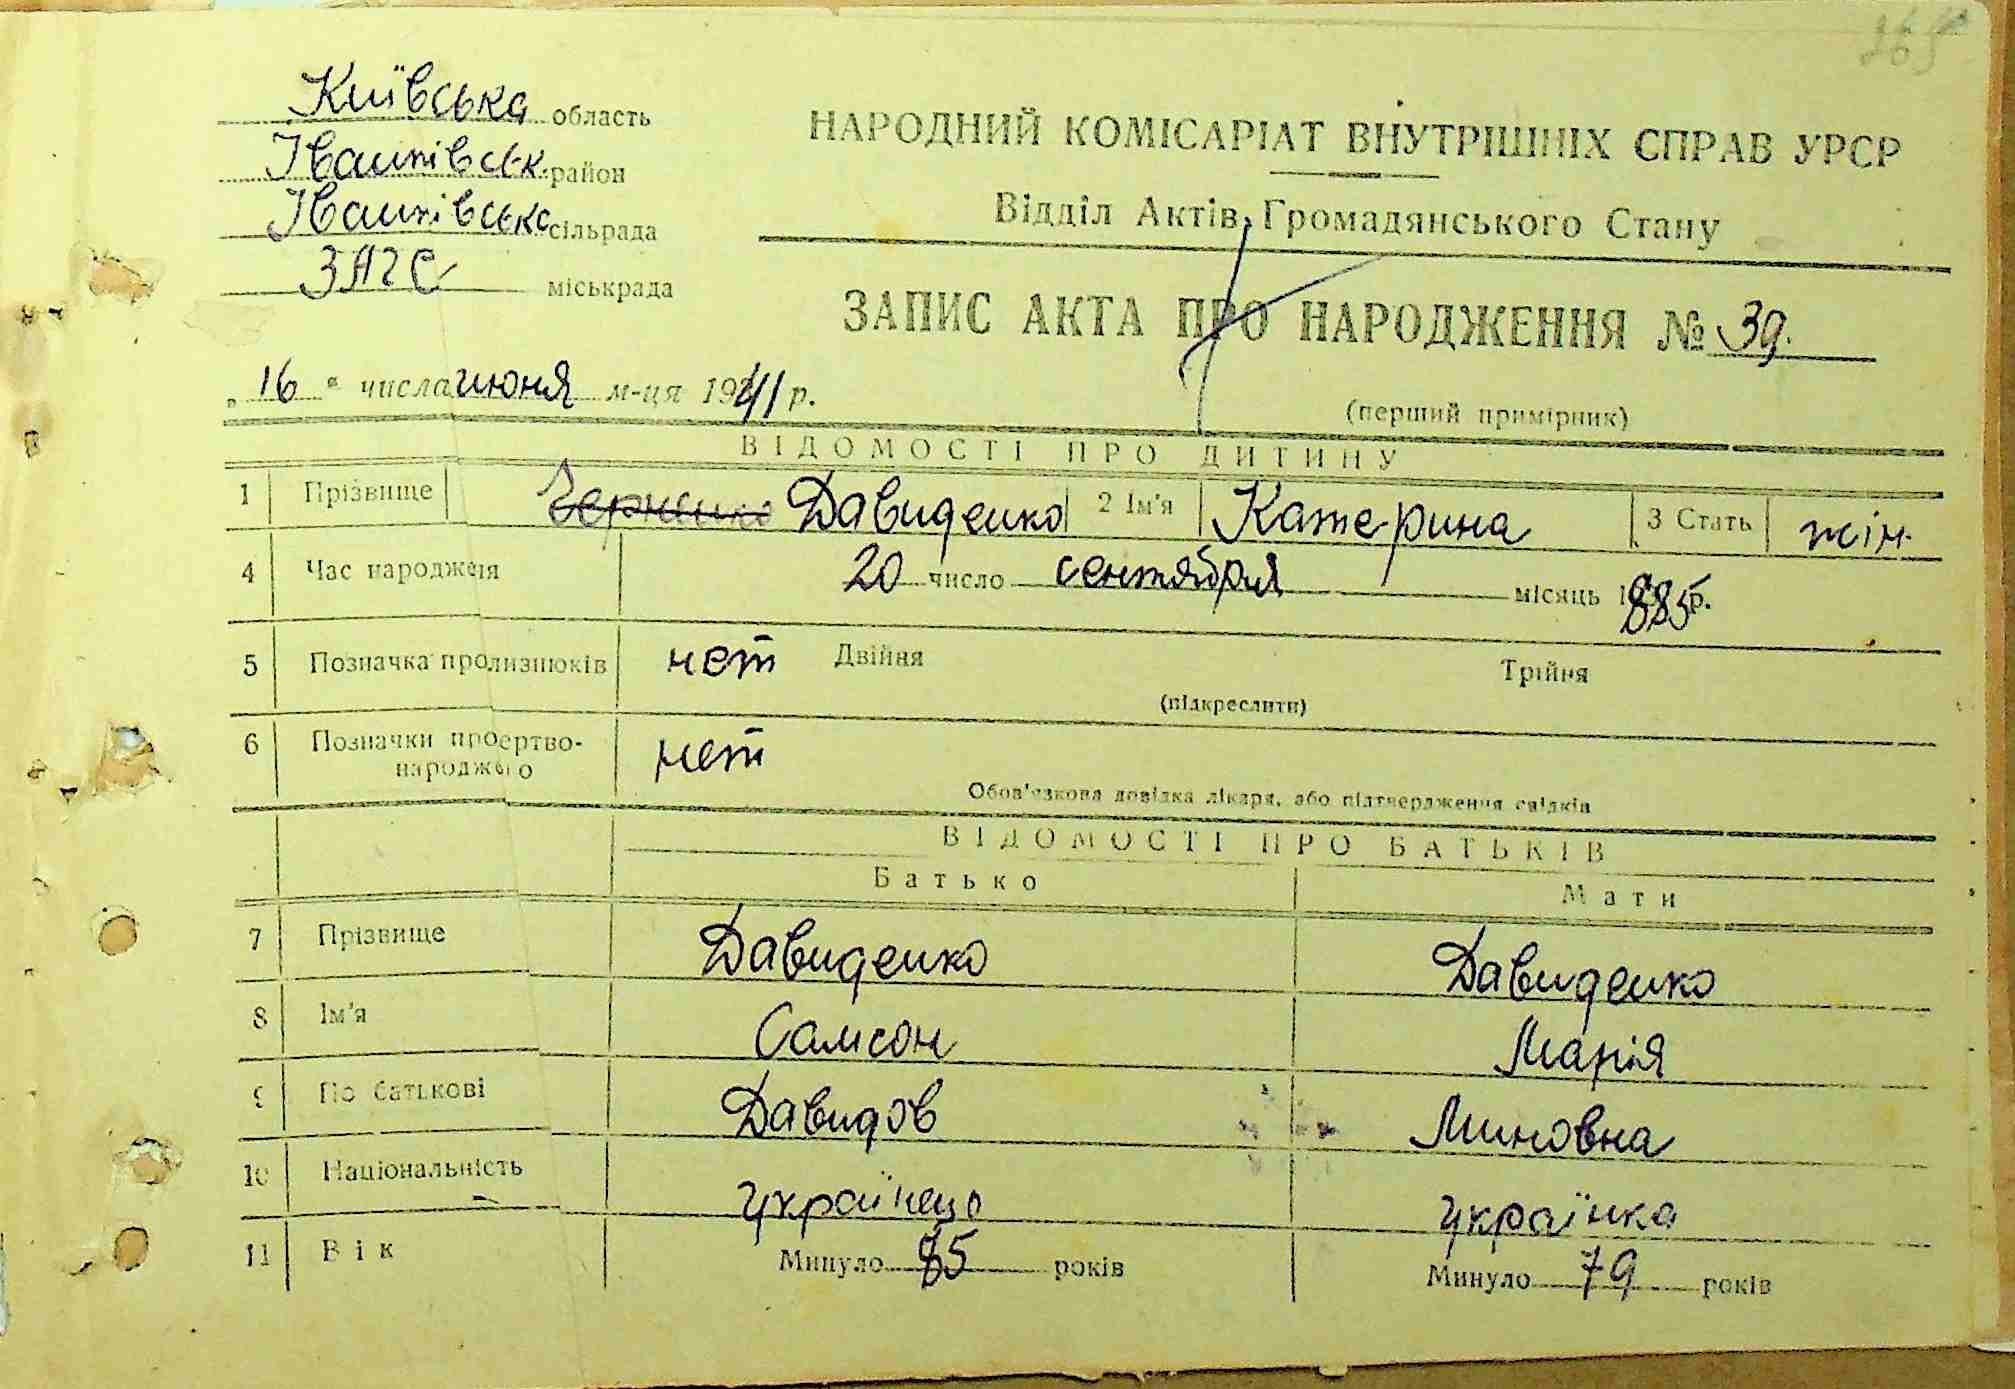 Київська область
Іванківськ. район
Іванківська сільрада
ЗАГС міськрада
НАРОДНИЙ КОМІСАРІАТ ВНУТРІШНІХ СПРАВ УРСР
Відділ Актів Громадянського Стану
ЗАПИС АКТА ПРО НАРОДЖЕННЯ № 39.
„ 16 " числа июня м-ця 1941 р.
(перший примірник)
ВІДОМОСТІ ПРО ДИТИНУ
1 Прізвище Давиденко 2 Ім'я Катерина 3 Стать жін.
4 Час народження 20 число сентября місяць 1885 р.
5 Позначка про близнюків нет Двійня Трійня
(підкреслити)
6 Позначки про мертво-
народженого нет
Обов'язкова довідка лікаря, або підтвердження свідків
ВІДОМОСТІ ПРО БАТЬКІВ
Батько Мати
7 Прізвище Давиденко Давиденко
8 Ім'я Самсон Марія
9 По батькові Давидов Миновна
10 Національність українець українка
11 Вік Минуло 85 років Минуло 79 років